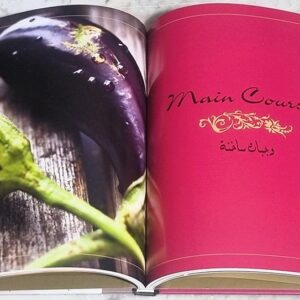 Main Cours
وجبات ساخنة